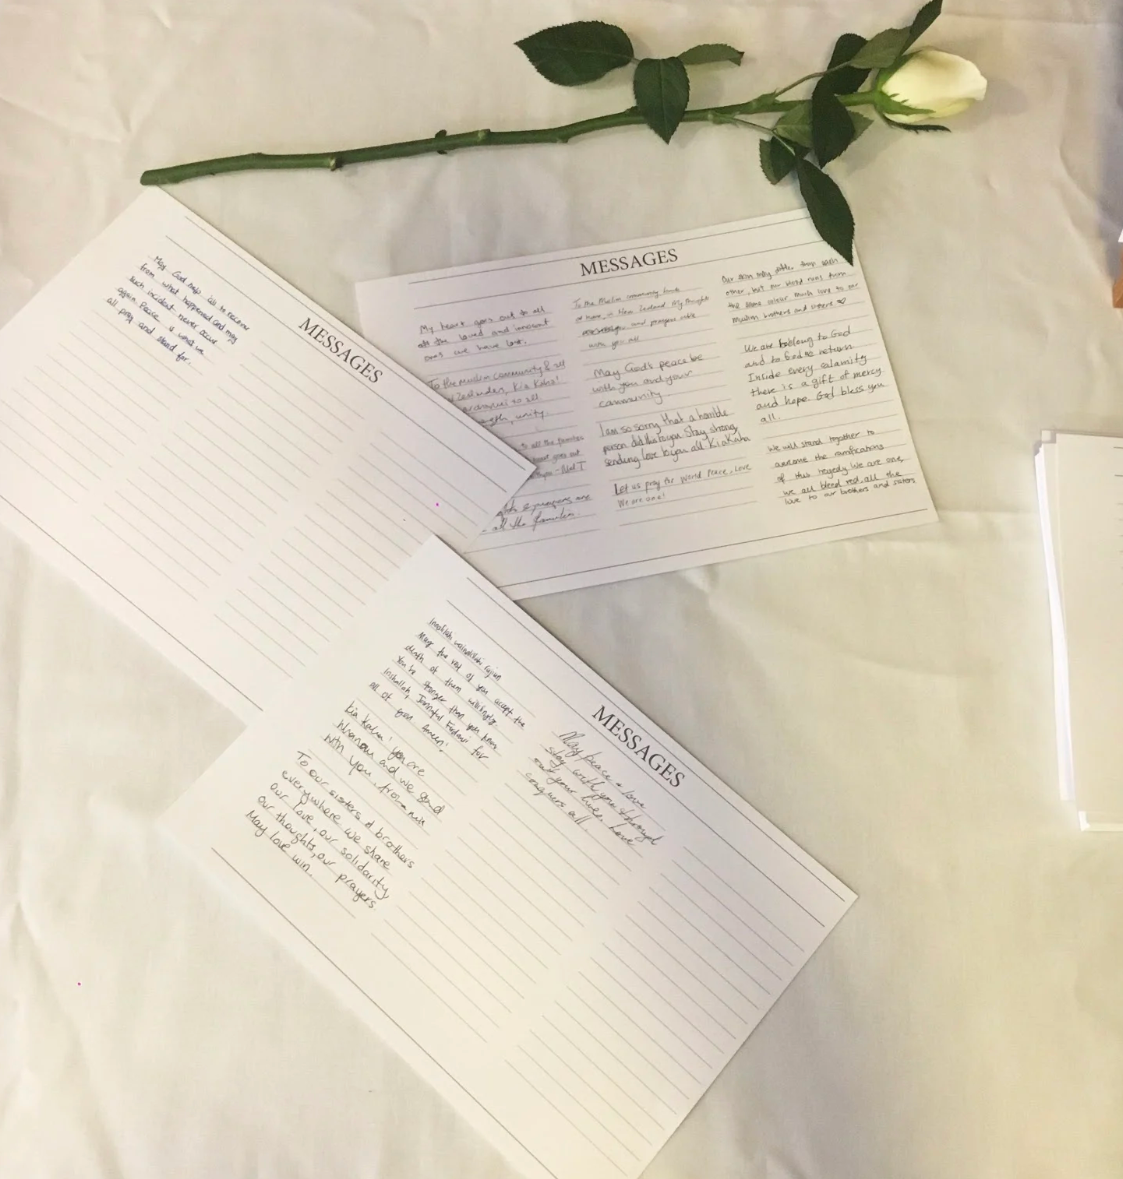 MESSAGES
May God help us to recover
from what happened. God may
such incident never occur
again. Peace is what we
all pray and stand for.
MESSAGES
My heart goes out to all
all the loved and innocent
ones we have lost.
To the Muslim community & all
Zealanders, Kia Kaha!
to all
strength, unity.
to all the families
goes out
you
& prayers are
all the families.
To the Muslim community
New Zealand. My thought
and prayers
with you all
May God's peace be
with you and your
community
I am so sorry that a horrible
person did this to you. Stay strong
sending love to you all Kia Kaha
Let us pray for World Peace, Love
We are one!
Our skin may differ from each
other, but our blood runs from
the same color much love to our
Muslim brothers and sisters ♥
We are belong to God
and to God we return
Inside every calamity
there is a gift of mercy
and hope. God bless you
all.
We will stand together to
the ramifications
of this tragedy. We are one,
we all bleed red, all the
love to our brothers and sisters
MESSAGES
May the rest of you accept the
death of them willingly
You're stronger than you know
Inshallah, Jannatul Firdaus for
all of you.
Kia Kaha! You are
and we send
with you, from
To our sisters & brothers
everywhere we share
our love, our solidarity
our thoughts, our prayers
May love win.
May peace & love
stay with you through
out your lives love
conquers all.